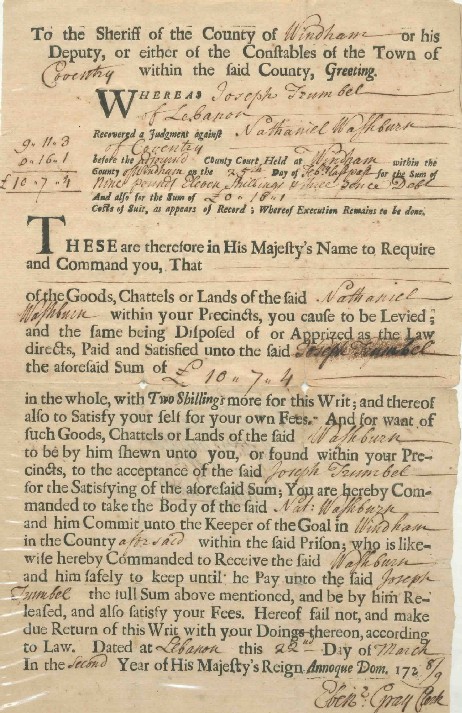 To the Sheriff of the County of Windham or his
Deputy, or either of the Constables of the Town of
Coventry within the said County, Greeting.
WHEREAS Joseph Trumbel
of Lebanon
Recovered a Judgment against Nathaniel Washburn
9.. 11.. 3 of Coventry
0.. 16.. 1 before the County Court, Held at Windham within the
County of Windham on the 25th Day of Feb: last past for the Sum of
£10.. 7.. 4 Nine Pounds Eleven Shillings Pence Debt
And also for the Sum of £0.. 16.. 1
Costs of Suit, as appears of Record; Whereof Execution Remains to be done,
THESE are therefore in His Majesty's Name to Require
and Command you, That
of the Goods, Chattels or Lands of the said Nathaniel
Washburn within your Precincts, you cause to be Levied;
and the same being Disposed of or Apprized as the Law
directs, Paid and Satisfied unto the said Joseph Trumbel
the aforesaid Sum of £10.. 7.. 4
in the whole, with Two Shillings more for this Writ; and thereof
also to Satisfy your self for your own Fees. And for want of
such Goods, Chattels or Lands of the said Washburn
to be by him shewn unto you, or found within your Pre-
cincts, to the acceptance of the said Joseph Trumbel
for the Satisfying of the aforesaid Sum; You are hereby Com-
manded to take the Body of the said Nat: Washburn
and him Commit unto the Keeper of the Goal in Windham
in the County aforsaid within the said Prison; who is like-
wise hereby Commanded to Receive the said Washburn
and him safely to keep until he Pay unto the said Joseph
Trumbel the full Sum above mentioned, and be by him Re-
leased, and also satisfy your Fees. Hereof fail not, and make
due Return of this Writ with your Doings thereon, according
to Law. Dated at Lebanon this 22nd Day of March
In the Second Year of His Majesty's Reign Annoque Dom. 172 8/9
Eben:r Gray Clerk